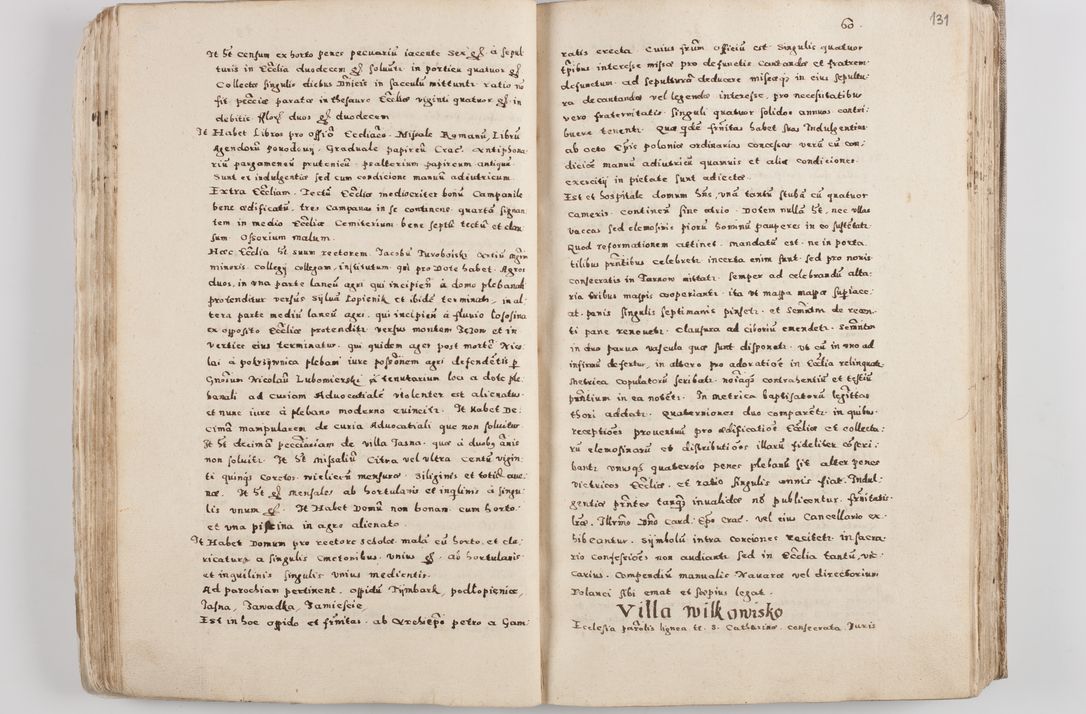 It ht censum ex horto penes pecuariū iacente Sex gł. à sepul
turis in Ecclia duodecem gł. soluūtr in porticu quatuor gł.
Collectæ singulis diebus Dnicis in sacculū mittuntr ratio nō
fit pecciæ paratæ in thesauro Eccliæ viginti quatuor gł. in
debitis flor. duos gł. duodecem
It Habet Libros pro offio Eccliaco. Missale Romanū, Librū
Agendorū Graduale papireū Crac. Antiphona
riū pargameneū prutenicū. psalterium papireum antiquū.
Sunt et indulgentiæ sed cum condicione manuū adiutricum.
Extra Eccliam. Tectū Eccliæ mediocriter bonū Campanile
bene ædificatū. tres Campanas in se continens quartā signan
tem in medio Eccliæ Cemiterium bene septū tectū et clau
sum Ossorium malum.
Hæc Ecclia ht suum rectorem Jacobū Turoboiski Artiū mgrm
minoris collegij collegam, institutum. qui pro Dote habet Agros
duos, in vna parte laneū agri qui incipien à domo plebanali
protenditur versus syluā Lopienik et ibidē terminatr, in al:
tera parte mediū laneū agri. qui incipien à fluuio Lososina
ex opposito Eccliæ protenditr versus montem Jezow et in
vertice eius terminatur. qui quidem ager post mortē Nico
lai à pokrziwnica plebani iure posſonem agri defendētis p
Gnosum Nicolaū Lubomierski tenutarium loci a dote ple
banali ad curiam Aduocatialē violenter est alienatus
et nunc iure à plebano moderno euincitr. It Habet De:
cimā manipularem de curia Aduocatiali que non soluitur
It ht decimā pecciariam de villa Jasna. quæ à duobq annis
non soluitr. It ht missaliū Citra vel vltra Centū vigin:
ti quinq coretos. mensuræ siliginis et totidē aue:
næ. It ht gł mensales ab hortulanis et inqlinis à singu:
lis vnum gł. It Habet Domū non bonam. cum horto:
et vna piscina in agro alienato
It Habet Domum pro rectore scholæ malā cū horto. et cle:
ricatura a singulis cmetonibus. vnius gł. ab hortulanis
et inquilinis singulis vnius medientis.
Ad parochiam pertinent. oppidū Tymbark, podłopienice,
Jasna, Zawadka, Zamieście,
Est in hoc oppido et frnitas. ab Archiepo petro a Gam:
60
131
ratis erecta Cuius frum officiū est Singulis quatuor
tpibus interesse missæ pro defunctis Cantandæ et fratrem
defunctum ad sepulturā deducere missæq in eius sepultu:
ra decantandæ vel legendæ interesse, pro necessitatibus
vero fraternitatis singuli quatuor solidos annuos contri:
buere tenentr. Quæ qdē frnitas habet suas Indulgentias
ab octo Epis poloniæ ordinarias concessas verū cū con:
dicione manuū adiutricū quamuis et aliæ condiciones
exercitij in pietate sunt adiectæ.
Est et hospitale domum hns, vnā tantū stubā cū quatuor
cameris continens sine atrio. Dotem nullā ht, nec vllas
vaccas sed elemosinis piorū hominū pauperes in eo sustētātr
Quod reformationem attinet. mandatū est. ne in porta
tilibus prntibus celebretr. incerta enim sunt. sed pro nouis
consecratis in Tarnow mittatr. semper ad celebrandū alta:
ria tribus mappis cooperiantr. ita vt mappa mappæ supiace:
at. panis singulis septimanis pinsetr. et semeltm de recen:
ti pane renouetr. Clausura ad ciborium emendetr. semeltm
in duo parua vascula quæ sunt disponatr. vt cū in vno ad
infirmū defertur, in altero pro adoratioe in Ecclia relinquatr.
Metrica copulatorū scribatr. noiaq contrahentiū et testiū
prntium in ea notētr. In metrica baptisatorū legittus
thori addatr. Quaterniones duo comparētr in quibus
receptioes prouentuū pro ædificatioē Eccliæ et collecta:
rū elemosinarū et distributioēs illarū fideliter cōscri:
bantr. vnusq quaternio penes plebanū sit alter penes
victricos Eccliæ. et ratio singulis annis fiat. Indul:
gentiæ prntes tanq inualidæ nō publicentur. frnitatis
lræ. Illrmo Dno Card. Epo Crac. vel eius Cancellario ex:
hibeantur. Symbolū intra conciones recitetr. in sacra:
rio Confessioes non audiantr sed in Ecclia tantū, vi:
carius. Compendiū manualis Nauaræ vel directorium
Polanci sibi emat et sæpius legat.
Villa wilkowisko
Ecclesia parolis lignea tt. S. Catharinæ. consecrata Juris